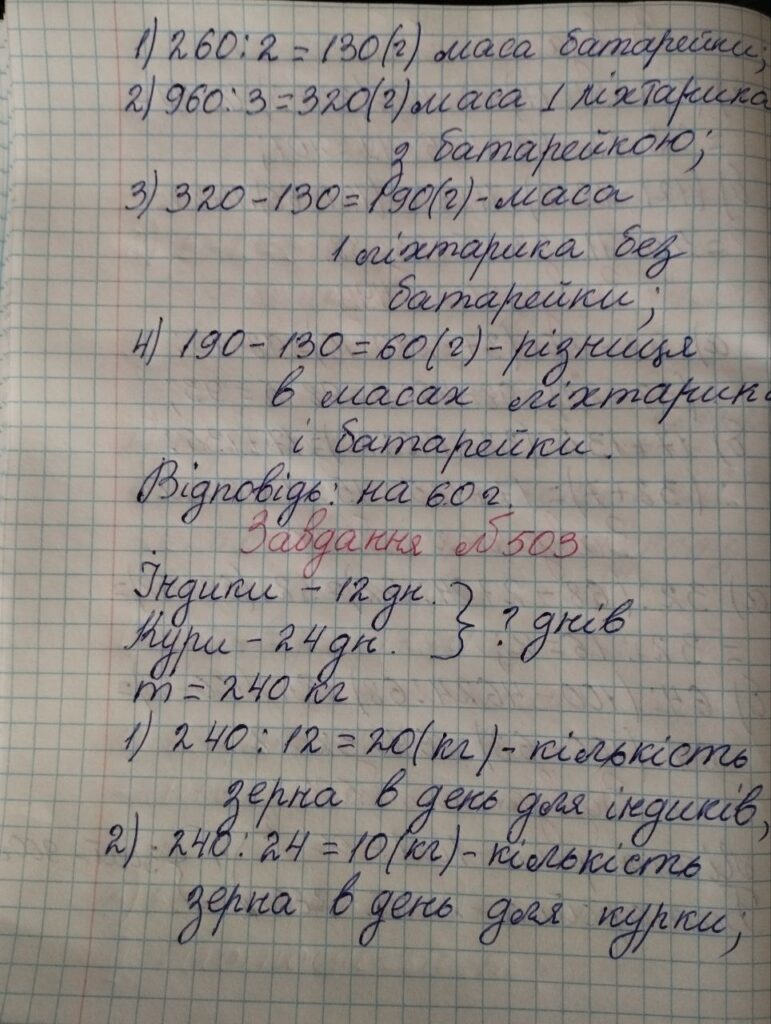 1) 260 : 2 = 130 (г) маса батарейки;
2) 960 : 3 = 320 (г) маса 1 ліхтарика
з батарейкою;
3) 320 - 130 = 190 (г) - маса
1 ліхтарика без
батарейки;
4) 190 - 130 = 60 (г) - різниця
в масах ліхтарик
і батарейки.
Відповідь: на 60 г.
Завдання №503
Індики - 12 дн. } ? днів
Кури - 24 дн.
m = 240 кг
1) 240 : 12 = 20 (кг) - кількість
зерна в день для індиків,
2) 240 : 24 = 10 (кг) - кількість
зерна в день для курки;